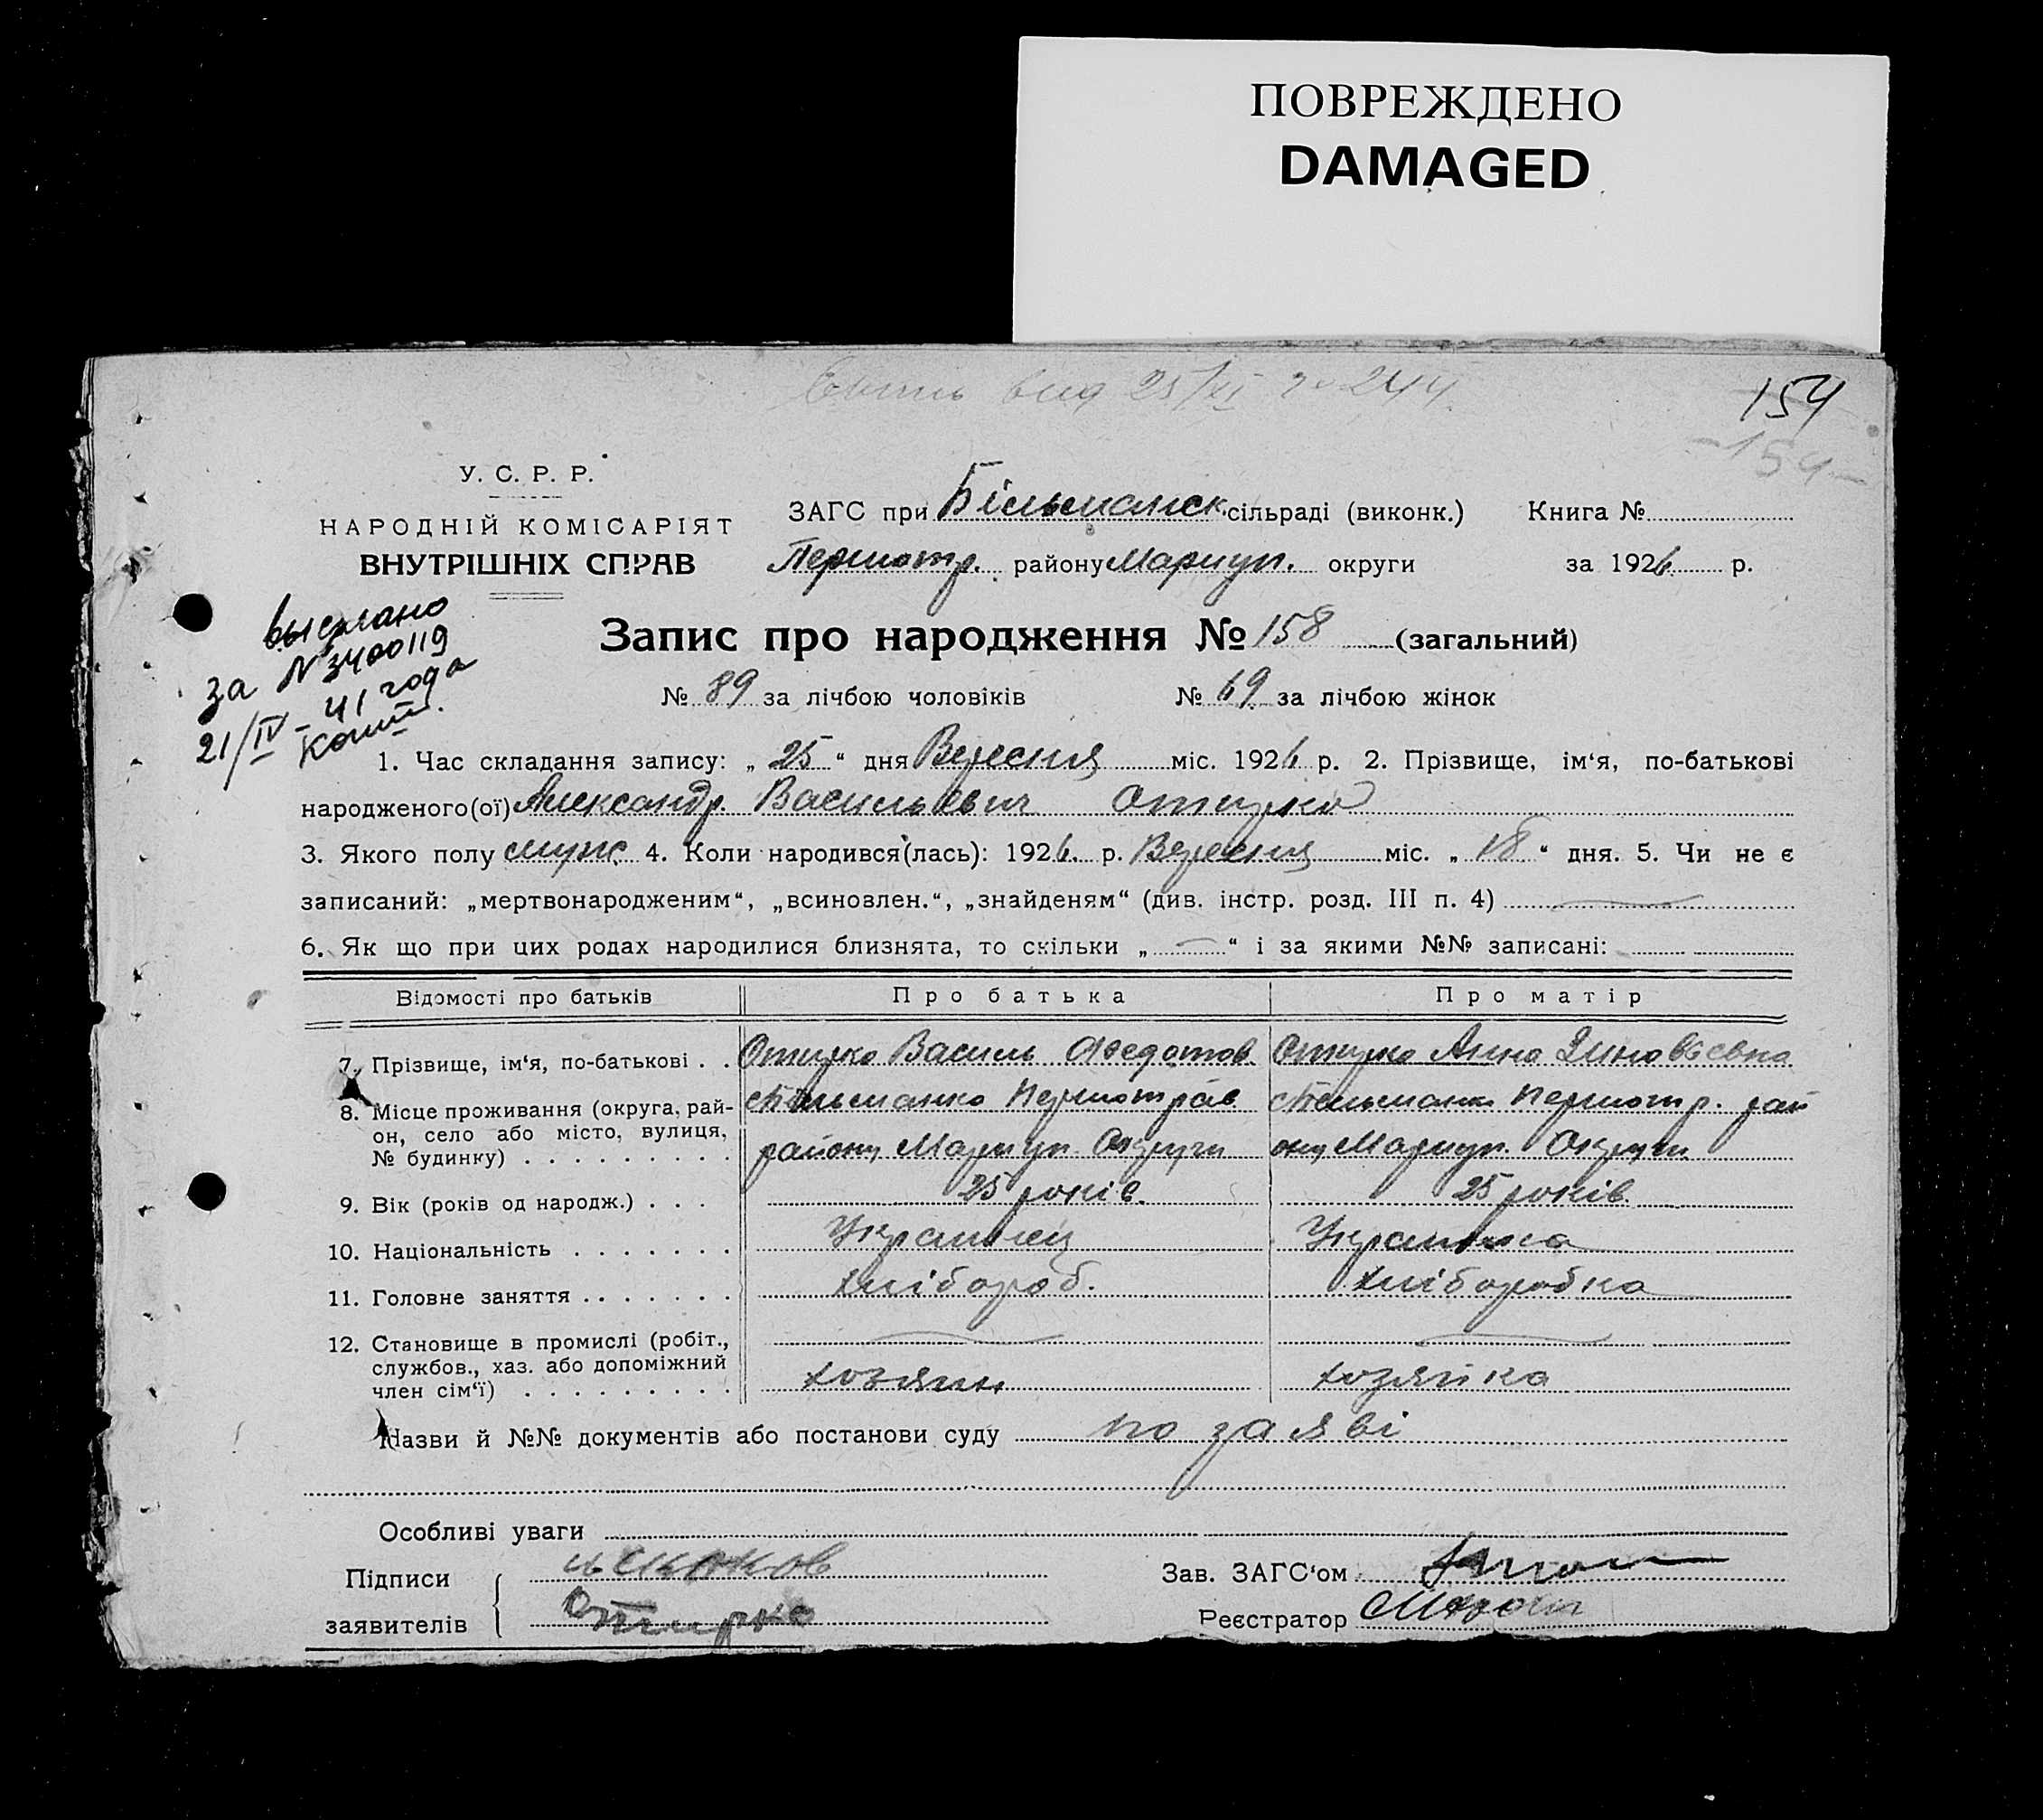 ПОВРЕЖДЕНО
DAMAGED
вид 25/XI № 244
154
-154-
У. С. Р. Р.
НАРОДНІЙ КОМІСАРІЯТ
ВНУТРІШНІХ СПРАВ
ЗАГС при Більманск сільраді (виконк.) Книга №
Першотр. району Мариуп. округи за 1926 р.
выслано
за №3400119
21/IV - 41 года
Запис про народження № 158 (загальний)
№ 89 за лічбою чоловіків № 69 за лічбою жінок
1. Час складання запису: „ 25 “ дня Вересня міс. 1926 р. 2. Прізвище, ім‘я, по-батькові
народженого(ої) Александр Васильевич Отирко
3. Якого полу муж 4. Коли народився(лась): 1926. р. Вересня міс. „ 18 “ дня. 5. Чи не є
записаний: „мертвонародженим“, „всиновлен.“, „знайденям“ (див. інстр. розд. III п. 4)
6. Як що при цих родах народилися близнята, то скільки „ — “ і за якими №№ записані:
Відомості про батьків Про батька Про матір
7. Прізвище, ім‘я, по-батькові . . Отирко Василь Федотов Отирко Анна Зиновьевна
8. Місце проживання (округа, рай-
он, село або місто, вулиця,
№ будинку) . . . . . . . . .
с Більманка Першотрав с Більманка Першотр. рай
району Мариуп Округи ону Мариуп. Округи
9. Вік (років од народж.) . . . 25 років. 25 років.
10. Національність . . . . . . . Украинец Украинка
11. Головне заняття . . . . . . . хлібороб. хлiборобка
12. Становище в промислі (робіт.,
службов., хаз. або допоміжний
член сім‘ї) . . . . . . . . .
хозяин хозяйка
Назви й №№ документів або постанови суду по заяві
Особливі уваги
Підписи
заявителів
Отирко
Зав. ЗАГС‘ом
Реєстратор